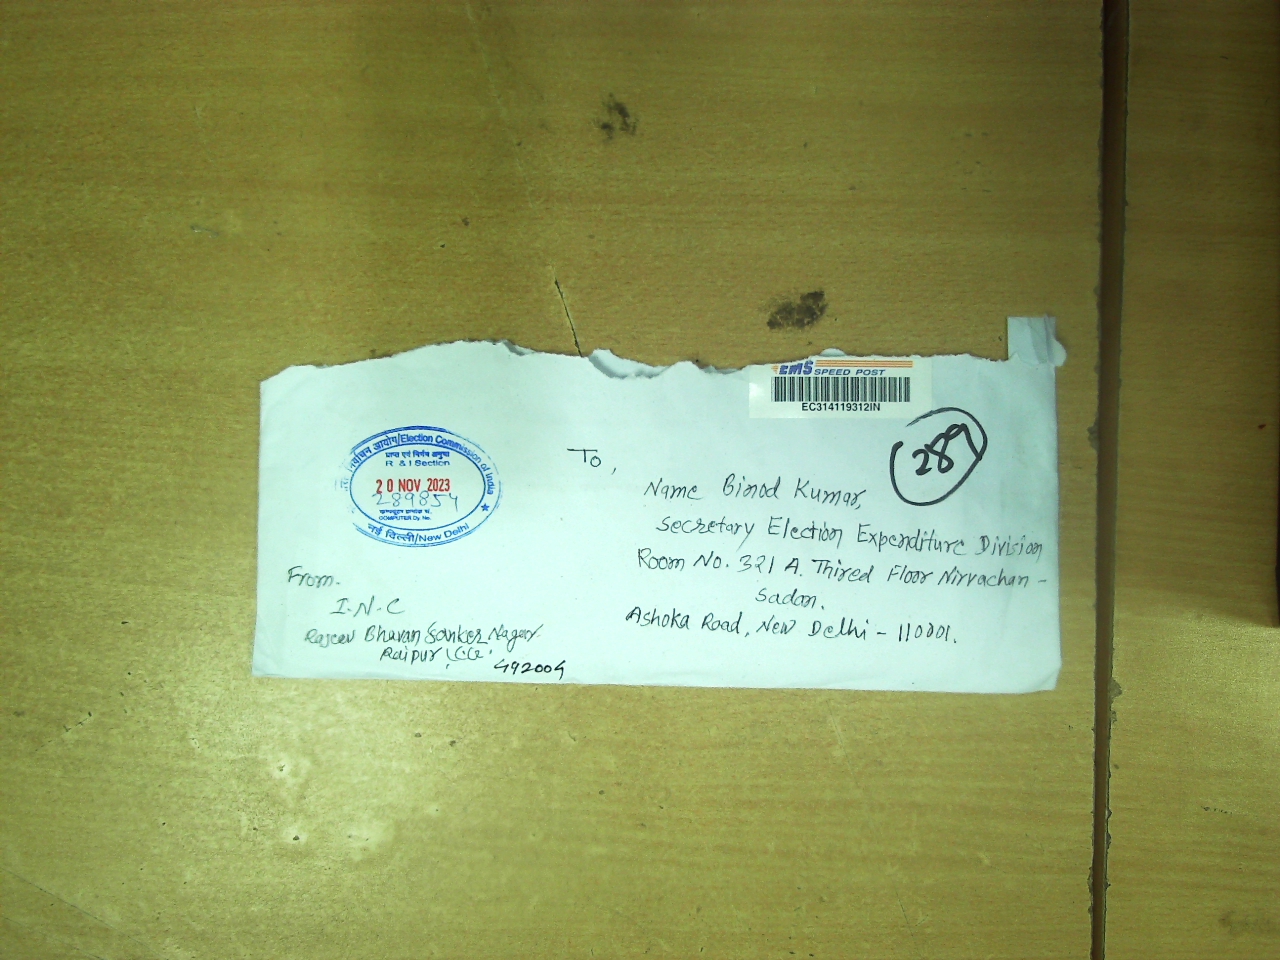 EMS SPEED POST
EC314119312IN
289
निर्वाचन आयोग/Election Commission of India
R & I Section
20 NOV 2023
289854
COMPUTER Dy. No.
नई दिल्ली/New Delhi
To,
Name Binod Kumar,
Secretary Election Expenditure Division
Room No. 321 A. Thired Floor Nirvachan -
Sadan.
Ashoka Road, New Delhi - 110001.
From.
I.N.C
Rajeev Bhavan Sanker Nagar.
Raipur, CG.
492004